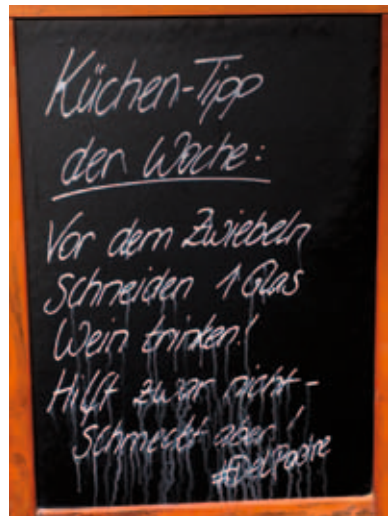 Küchen-Tipp
der Woche:
Vor dem Zwiebeln
Schneiden 1 Glas
Wein trinken!
Hilft zwar nicht -
Schmeckt aber!
#DelPadre